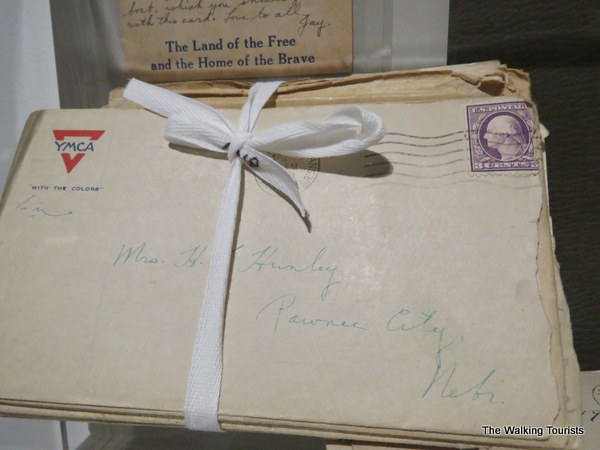 with this card. Love to all
Jay.
The Land of the Free
and the Home of the Brave
YMCA
"WITH THE COLORS"
U.S. POSTAGE
Mrs. H. Hunley
Pawnee City,
Nebr.
The Walking Tourists